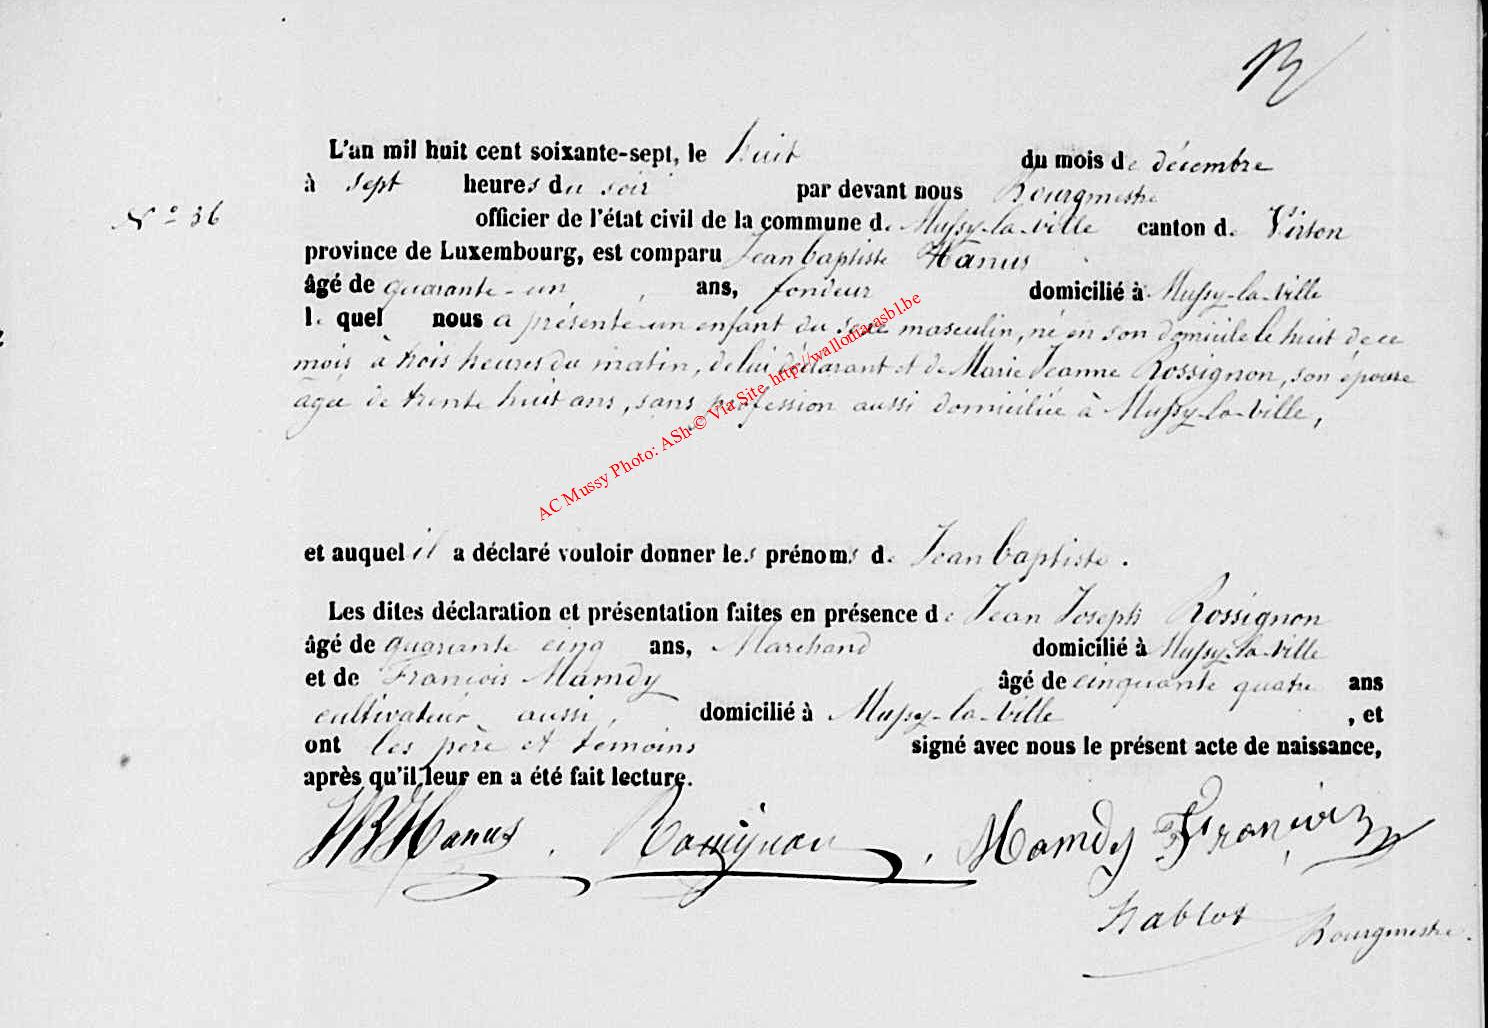 L'an mil huit cent soixante-sept, le huit du mois de décembre
à sept heures du soir par devant nous Bourgmestre
N° 36
officier de l'état civil de la commune de Mussy-la-ville canton de Virton
province de Luxembourg, est comparu Jean baptiste Hanus
âgé de quarante-un, ans, fondeur domicilié à Mussy-la-ville
le quel nous a présenté un enfant du sexe masculin, né en son domicile le huit de ce
mois à trois heures du matin, de lui déclarant et de Marie Jeanne Rossignon, son épouse
agée de trente huit ans, sans profession aussi domiciliée à Mussy-la-ville,
AC Mussy Photo: ASh © Via Site http://wallonia-asbl.be
et auquel il a déclaré vouloir donner les prénoms de Jean baptiste.
Les dites déclaration et présentation faites en présence de Jean Joseph Rossignon
âgé de quarante cinq ans, Marchand domicilié à Mussy-la-ville
et de François Mamdy âgé de cinquante quatre ans
cultivateur aussi, domicilié à Mussy-la-ville, et
ont les père et temoins signé avec nous le présent acte de naissance,
après qu'il leur en a été fait lecture.
JB Hanus. Rossignon, Mamdy François
Bourgmestre.